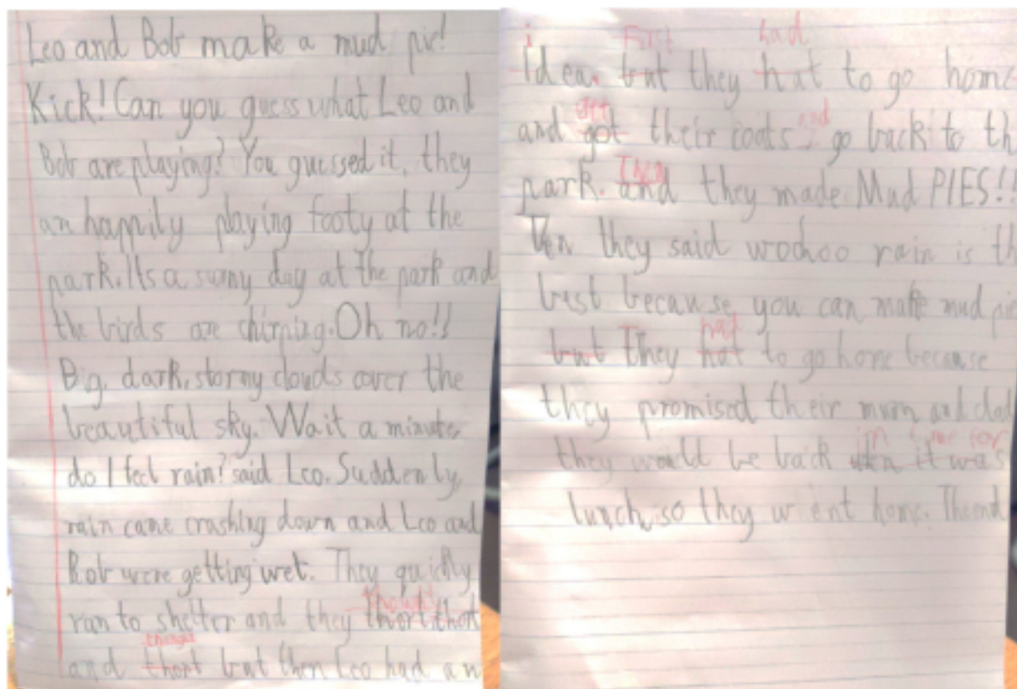 Leo and Bob make a mud pie!
Kick! Can you guess what Leo and
Bob are playing? You guessed it, they
are happily playing footy at the
park. Its a sunny day at the park and
the birds are chirping. Oh no!!
Big, dark, stormy clouds cover the
beautiful sky. Wait a minute,
do I feel rain? said Leo. Suddenly,
rain came crashing down and Leo and
Bob were getting wet. They quickly
thought
ran to shelter and they thort thort
thought
and thort but then Leo had an
i First had
Idea. but they hat to go home
get and
and got their coats, go back to th
Then
park. and they made Mud PIES!!
Ten they said wohoo rain is th
best because you can make mud pie
had
but They hat to go home because
they promised their mum and dad
in time for
they would be back when it was
lunch, so they went home. The end